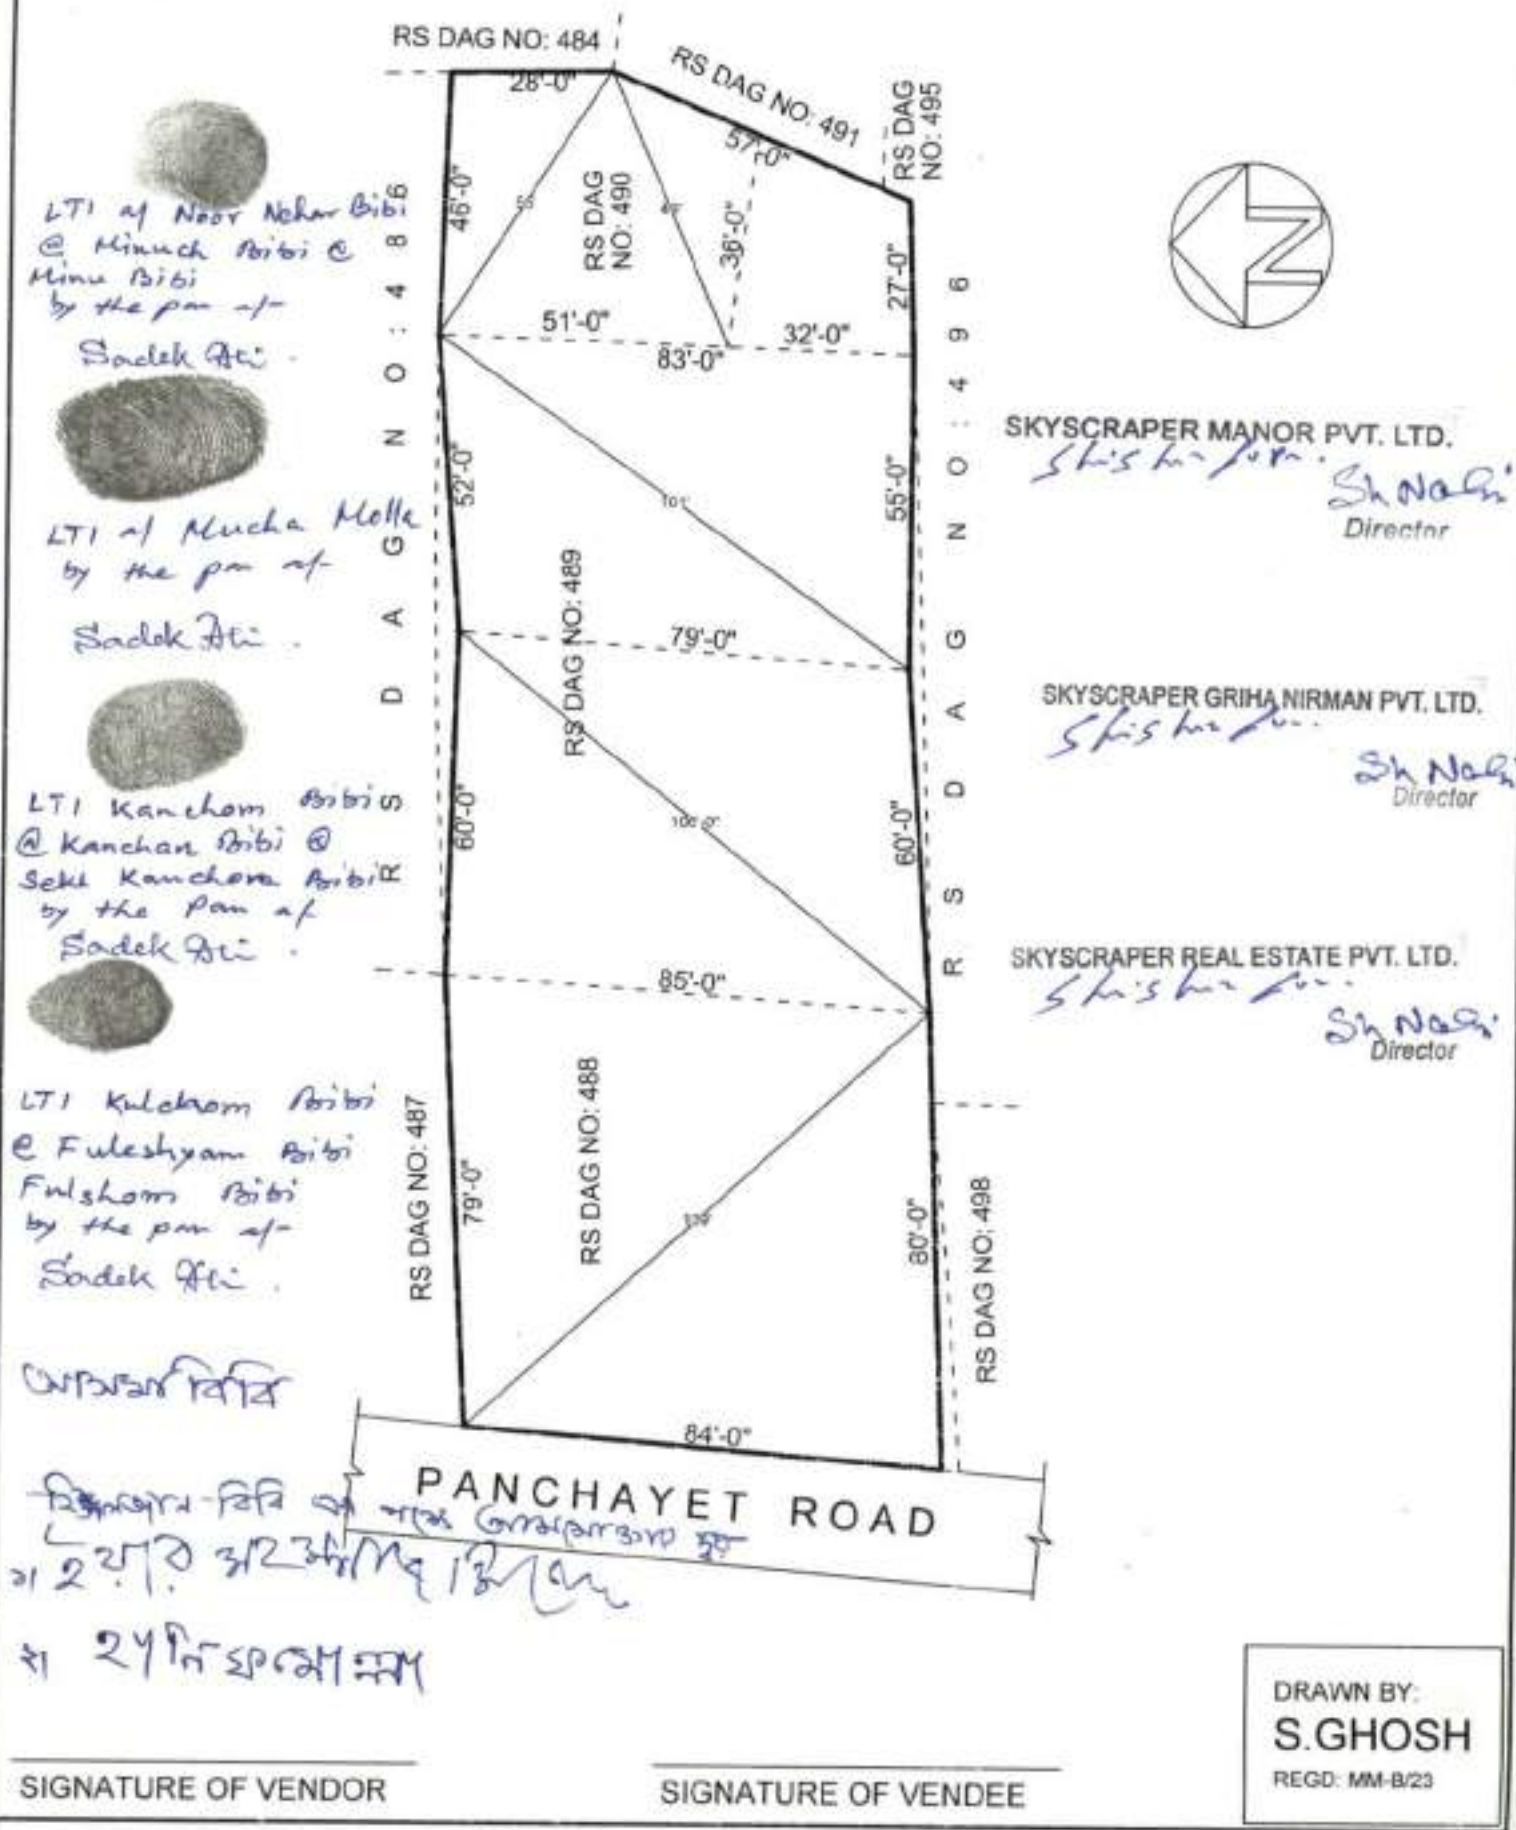 RS DAG NO: 484
RS DAG NO: 491
RS DAG
NO: 495
28'-0"
57'-0"
46'-0"
55'
RS DAG
NO: 490
36'-0"
27'-0"
51'-0"
32'-0"
83'-0"
RS DAG NO: 486
RS DAG NO: 496
52'-0"
101'
55'-0"
RS DAG NO: 489
79'-0"
60'-0"
60'-0"
85'-0"
RS DAG NO: 487
79'-0"
RS DAG NO: 488
80'-0"
RS DAG NO: 498
84'-0"
PANCHAYET ROAD
N
LTI of Noor Nehar Bibi
@ Minuch Bibi @
Minu Bibi
by the pen of-
Sadek Ali.
LTI of Mucha Molla
by the pen of-
Sadek Ali.
LTI Kanchom Bibi
@ Kanchan Bibi @
Sekh Kanchora Bibi
by the Pen of
Sadek Ali.
LTI Kulchom Bibi
@ Fuleshyam Bibi
Fulshom Bibi
by the pen of-
Sadek Ali.
বিবি
বিবি
SKYSCRAPER MANOR PVT. LTD.
Director
SKYSCRAPER GRIHA NIRMAN PVT. LTD.
Director
SKYSCRAPER REAL ESTATE PVT. LTD.
Director
SIGNATURE OF VENDOR
SIGNATURE OF VENDEE
DRAWN BY:
S.GHOSH
REGD: MM-B/23